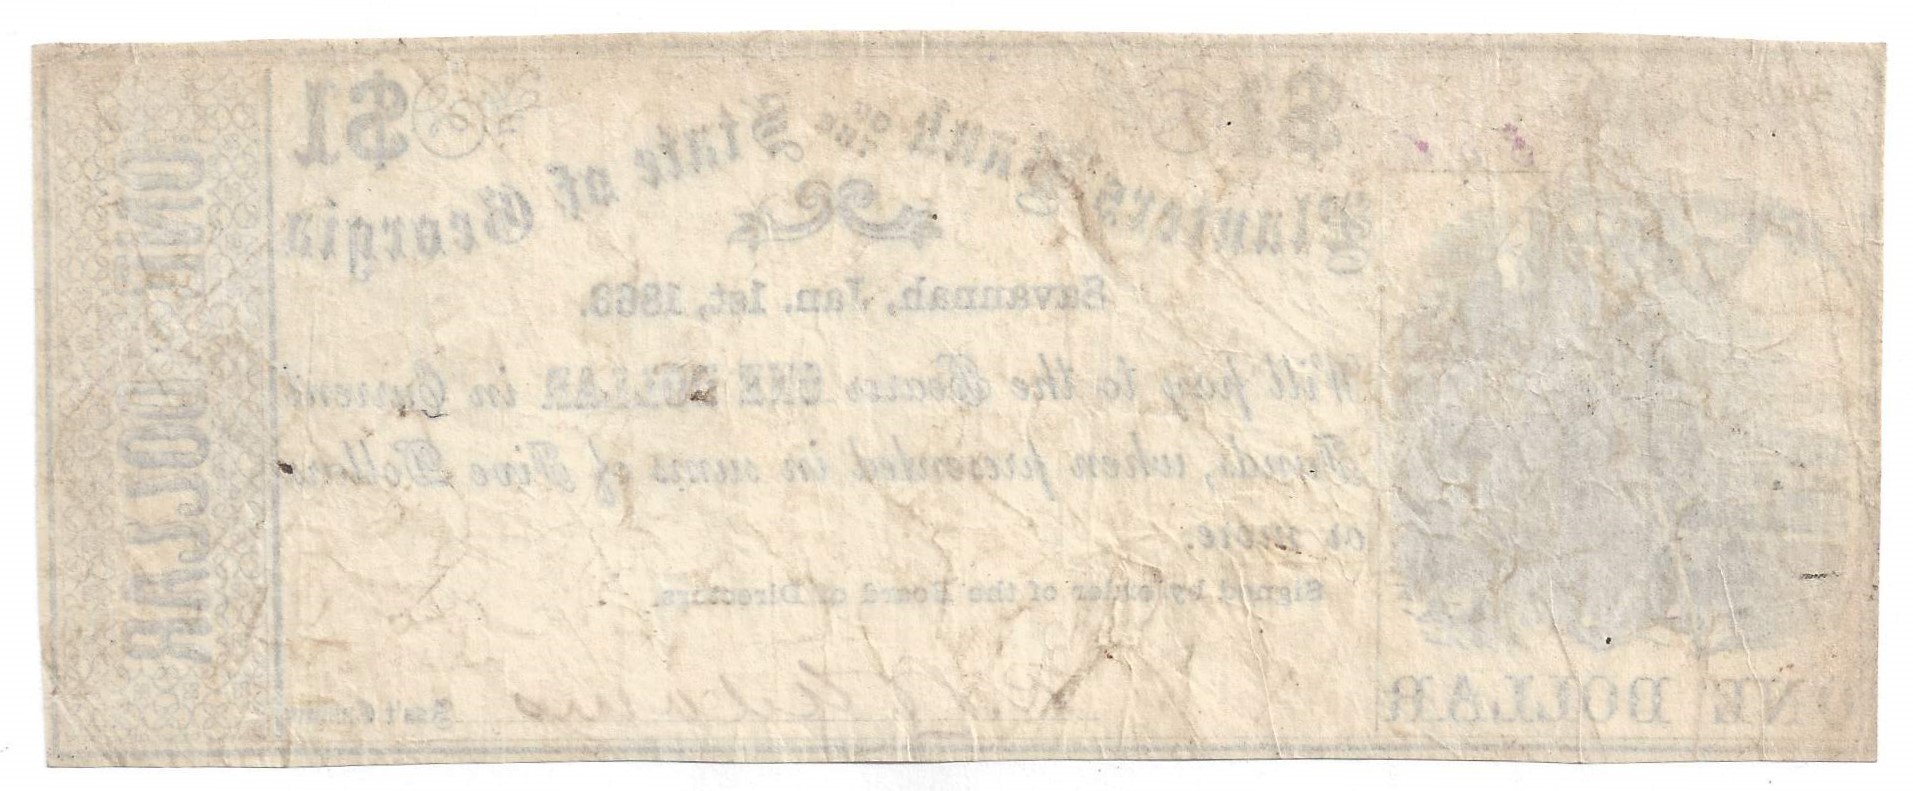 $1 $1
Planters' Bank of the State of Georgia
Savannah, Jan. 1st, 1863.
Will pay to the Bearer ONE DOLLAR in Current
Funds, when presented in sums of Five Dollars
or more.
Signed by order of the Board of Directors.
ONE DOLLAR
ONE DOLLAR